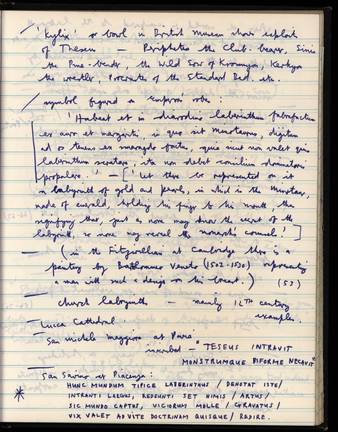 'Kylix' or bowl in British Museum shows exploits
of Theseus — Periphetes the Club-bearer, Sinis
the Pine-bender, the Wild Sow of Krommyon, Kerkyon
the wrestler, Procrustes of the Standard Bed. etc.
symbol figured on emperor's robe:
'Habeat et in diarodino laberinthum fabrefactum
ex auro et margaritis, in quo sit Minotaurus, digitum
ad os tenens ex smaragdo factus, quia sicut non valet quis
laberinthum scrutari, ita non debet consilium dominatoris
propalare.' — ['Let there be represented on it
a labyrinth of gold and pearls, in which is the Minotaur,
made of emerald, holding his finger to his mouth, thus
signifying that, just as none may know the secret of the
labyrinth, so none may reveal the monarch's counsels.']
— (in the Fitzwilliam at Cambridge there is a
painting by Bartolommeo Veneto (1502-1530) representing
a man with such a design on his breast.) (53)
— church labyrinth — mainly 12th century
examples.
— Lucca Cathedral.
— San Michele Maggiore at Pavia
inscribed — "TESEUS INTRAVIT
MONSTRUMQUE BIFORME NECAVIT"
— San Savino at Piacenza:
* HUNC MUNDUM TIPICE LABERINTHUS / DENOTAT ISTE /
INTRANTI LARGUS, REDEUNTI SET NIMIS / ARTUS /
SIC MUNDO CAPTUS, VICIORUM MOLLE / GRAVATUS /
VIX VALET AD VITE DOCTRINAM QUISQUE / REDIRE.